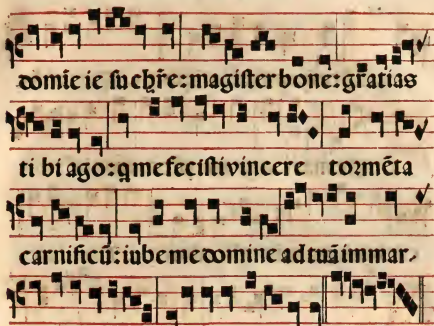 domīe ie su chr̄e: magister bone: gratias
ti bi ago: q me fecisti vincere tormēta
carnificū: iube me domine ad tuā immar-